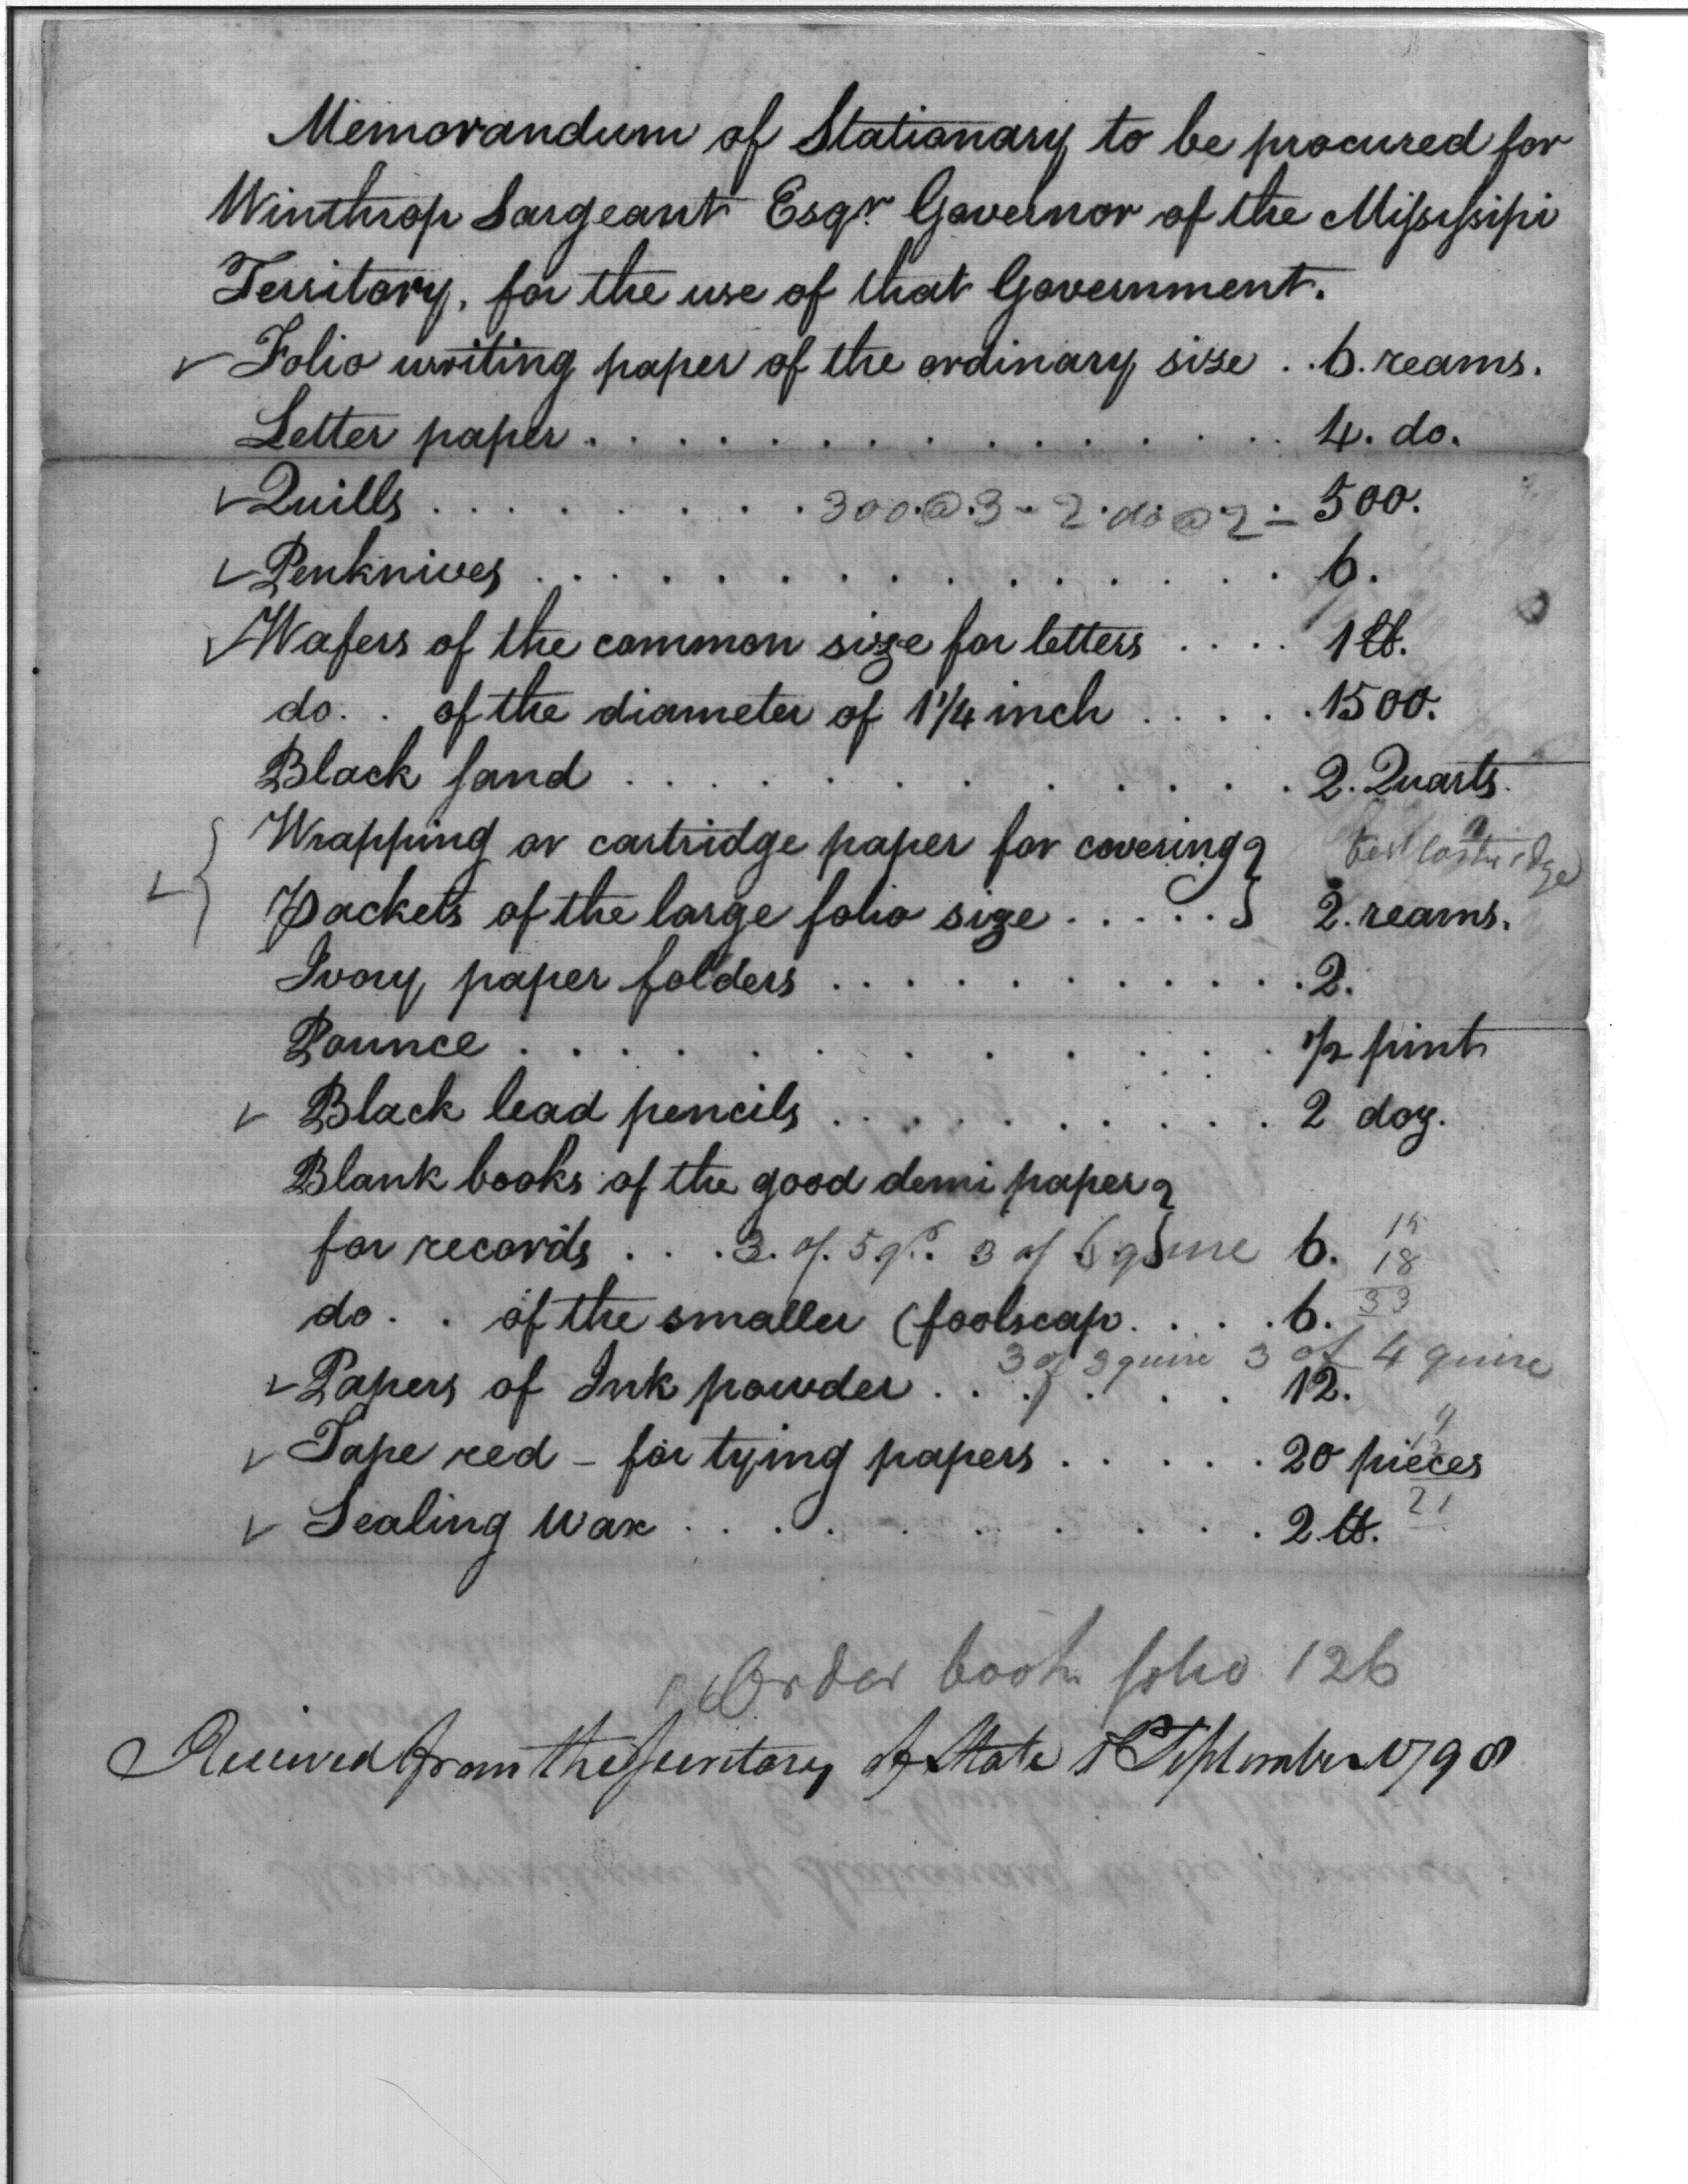 Memorandum of Stationary to be procured for
Winthrop Sargeant Esqr Governor of the Mississipi
Territory, for the use of that Government.
✓ Folio writing paper of the ordinary size . . 6. reams.
Letter paper . . . . . . . . . . . . . . . 4. do.
✓ Quills . . . . . . . . 300 @ 3 - 2 do @ 2 - 500.
✓ Penknives . . . . . . . . . . . . . . 6.
✓ Wafers of the common size for letters . . . . 1 lb.
do. . of the diameter of 1 1/4 inch . . . . . 1500.
Black sand . . . . . . . . . . . 2. Quarts.
Wrapping or cartridge paper for covering } cartridge
✓ { Packets of the large folio size . . . . . } 2. reams.
Ivory paper folders . . . . . . . . . . . 2.
Pounce . . . . . . . . . . . . . 1/2 pint
✓ Black lead pencils . . . . . . . . . . 2 doz.
Blank books of the good demi paper }
for records . . . 3. of. 5 qr. 3 of 6 quire } 6. 15
18
do. . of the smaller (foolscap. . . . . 6. 33
3 of 3 quire 3 of 4 quire
✓ Papers of Ink powder . . . . . . . 12.
9
12
✓ Tape red - for tying papers . . . . . 20 pieces
21
✓ Sealing wax . . . . . . . . . . . 2 lb.
Order book folio 126
Received from the Secretary of State 5 September 1798